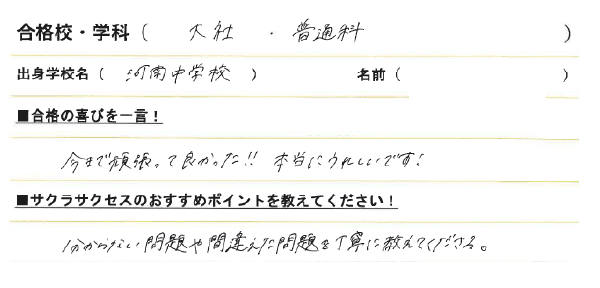 合格校・学科（ 大社 ・ 普通科 ）
出身学校名（ 河南中学校 ） 名前（ ）
■合格の喜びを一言！
今まで頑張って良かった!! 本当にうれしいです！
■サクラサクセスのおすすめポイントを教えてください！
分からない問題や間違えた問題を丁寧に教えてくださる。